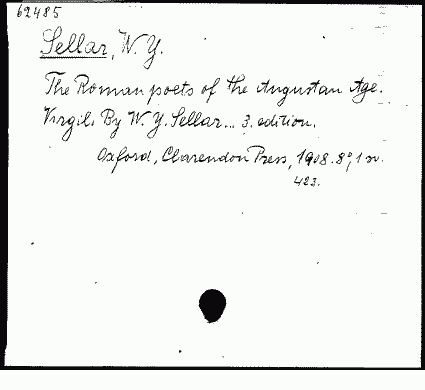 62485
Sellar, W. Y.
The Roman poets of the Augustan Age.
Virgil. By W. Y. Sellar... 3. edition.
Oxford, Clarendon Press, 1908. 8°, 1 v.
423.